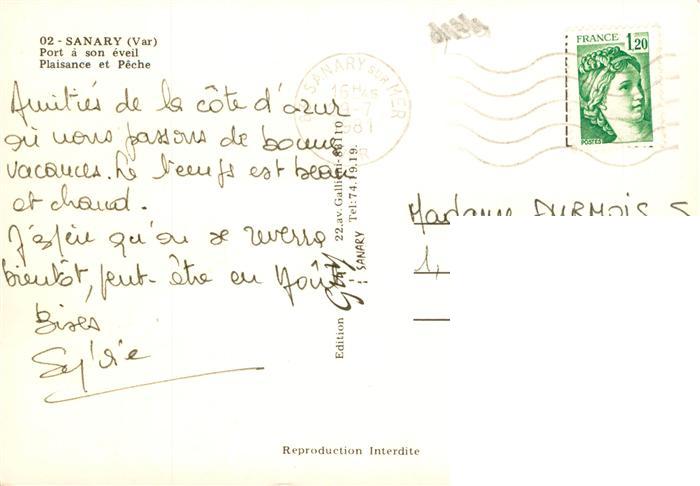 02 - SANARY (Var)
Port à son éveil
Plaisance et Pêche
Amitiés de la côte d'azur
où nous passons de bonne
vacances. Le temps est beau
et chaud.
J'espère qu'on se verra
bientôt, peut-être en Août
Bises
Sylvie
Edition
22.av. Gallieni-83110
SANARY
Tel: 74.19.19.
Reproduction Interdite
SANARY SUR MER
16H45
9-7
1981
FRANCE 1,20
POSTES
Madame
1,